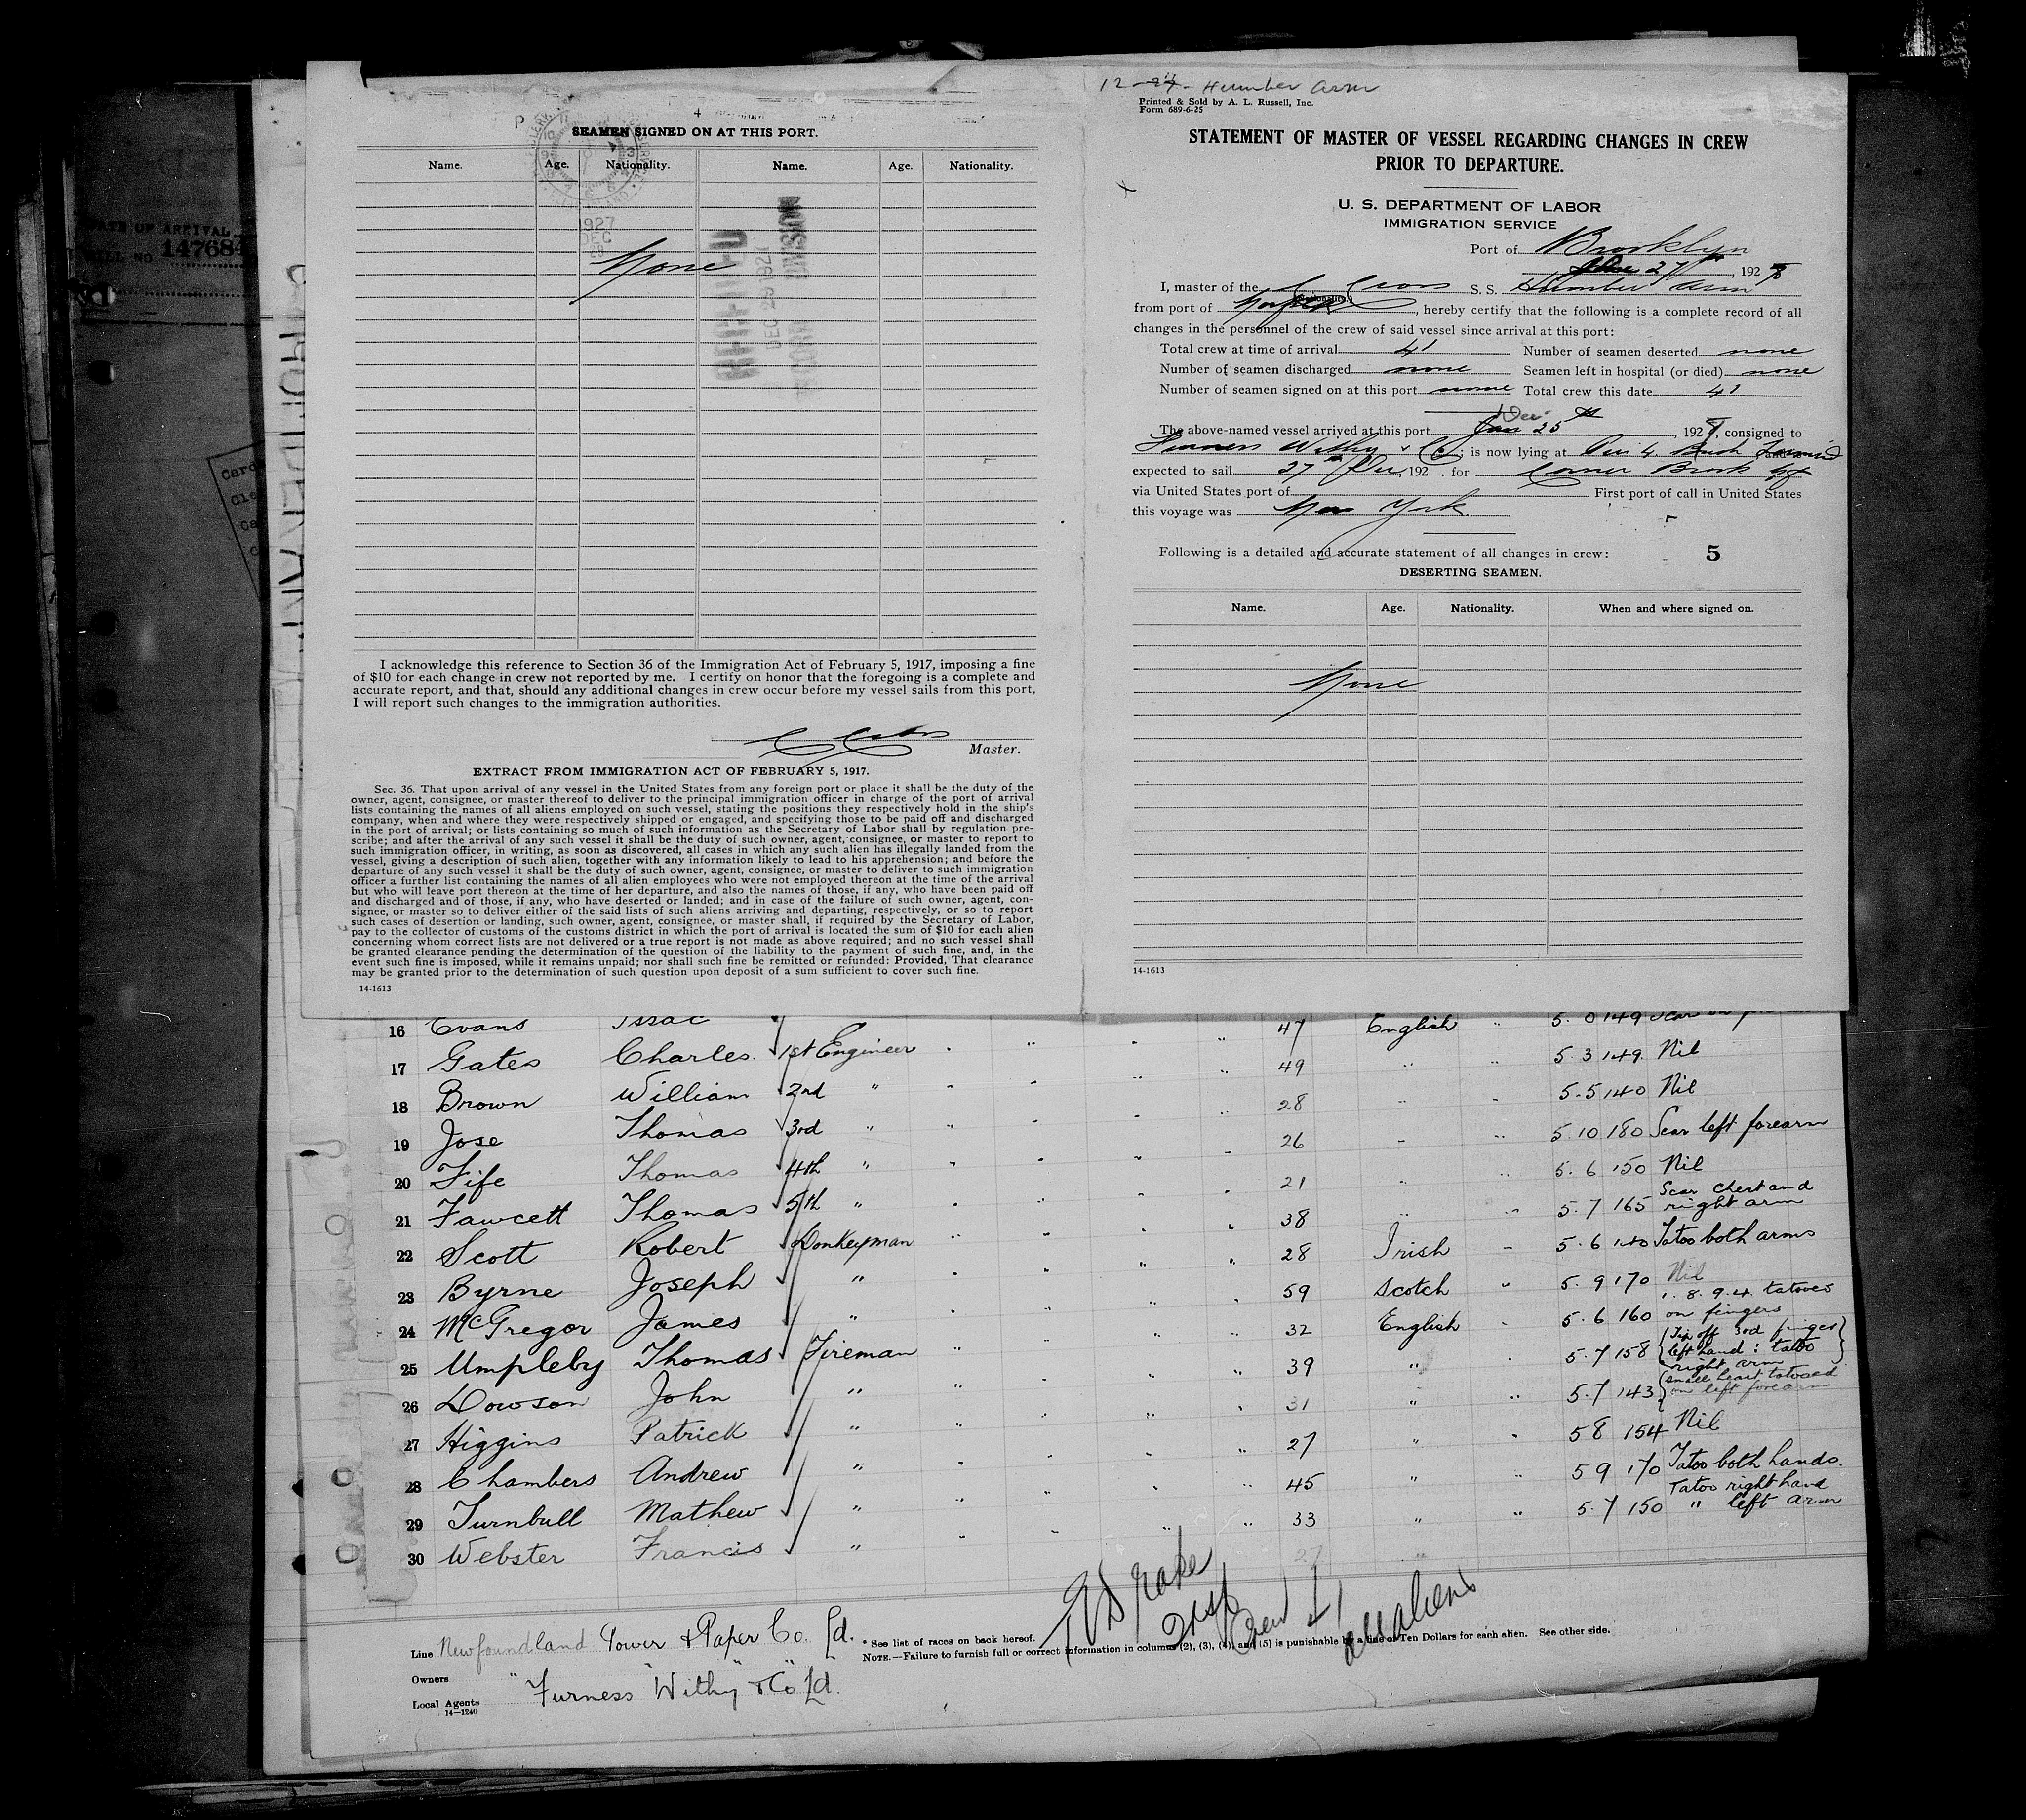 SEAMEN SIGNED ON AT THIS PORT.
Name. Age. Nationality. Name. Age. Nationality.
1927
DEC
29
None
I acknowledge this reference to Section 36 of the Immigration Act of February 5, 1917, imposing a fine
of $10 for each change in crew not reported by me. I certify on honor that the foregoing is a complete and
accurate report, and that, should any additional changes in crew occur before my vessel sails from this port,
I will report such changes to the immigration authorities.
Master.
EXTRACT FROM IMMIGRATION ACT OF FEBRUARY 5, 1917.
Sec. 36. That upon arrival of any vessel in the United States from any foreign port or place it shall be the duty of the
owner, agent, consignee, or master thereof to deliver to the principal immigration officer in charge of the port of arrival
lists containing the names of all aliens employed on such vessel, stating the positions they respectively hold in the ship's
company, when and where they were respectively shipped or engaged, and specifying those to be paid off and discharged
in the port of arrival; or lists containing so much of such information as the Secretary of Labor shall by regulation pre-
scribe; and after the arrival of any such vessel it shall be the duty of such owner, agent, consignee, or master to report to
such immigration officer, in writing, as soon as discovered, all cases in which any such alien has illegally landed from the
vessel, giving a description of such alien, together with any information likely to lead to his apprehension; and before the
departure of any such vessel it shall be the duty of such owner, agent, consignee, or master to deliver to such immigration
officer a further list containing the names of all alien employees who were not employed thereon at the time of the arrival
but who will leave port thereon at the time of her departure, and also the names of those, if any, who have been paid off
and discharged and of those, if any, who have deserted or landed; and in case of the failure of such owner, agent, con-
signee, or master so to deliver either of the said lists of such aliens arriving and departing, respectively, or so to report
such cases of desertion or landing, such owner, agent, consignee, or master shall, if required by the Secretary of Labor,
pay to the collector of customs of the customs district in which the port of arrival is located the sum of $10 for each alien
concerning whom correct lists are not delivered or a true report is not made as above required; and no such vessel shall
be granted clearance pending the determination of the question of the liability to the payment of such fine, and, in the
event such fine is imposed, while it remains unpaid; nor shall such fine be remitted or refunded: Provided, That clearance
may be granted prior to the determination of such question upon deposit of a sum sufficient to cover such fine.
14-1613
Humber Arm
Printed & Sold by A. L. Russell, Inc.
Form 689-6-25
STATEMENT OF MASTER OF VESSEL REGARDING CHANGES IN CREW
PRIOR TO DEPARTURE.
U. S. DEPARTMENT OF LABOR
IMMIGRATION SERVICE
Port of Brooklyn
27th, 192
I, master of the S. S. Humber Arm
from port of Norfolk, hereby certify that the following is a complete record of all
changes in the personnel of the crew of said vessel since arrival at this port:
Total crew at time of arrival 41 Number of seamen deserted none
Number of seamen discharged none Seamen left in hospital (or died) none
Number of seamen signed on at this port none Total crew this date 41
Dec
The above-named vessel arrived at this port 25th, 192, consigned to
Furness Withy & Co; is now lying at Pier 4. Bush
expected to sail 27th Dec, 192 . for Corner Brook Nfd
via United States port of First port of call in United States
this voyage was New York
Following is a detailed and accurate statement of all changes in crew: 5
DESERTING SEAMEN.
Name. Age. Nationality. When and where signed on.
None
14-1613
DATE OF ARRIVAL
147684
16 Evans Issac 47 English " 5. 0 149
17 Gates Charles 1st Engineer " " " " 49 " " 5. 3 149 Nil
18 Brown William 2nd " " " " " 28 " " 5. 5 140 Nil
19 Jose Thomas 3rd " " " " " 26 " " 5. 10 180 Scar left forearm
20 Fife Thomas 4th " " " " " 21 " " 5. 6 150 Nil
21 Fawcett Thomas 5th " " " " " 38 " " 5. 7 165 Scar chest and right arm
22 Scott Robert Donkeyman " " " " 28 Irish " 5. 6 140 Tatoo both arms
23 Byrne Joseph " " " " " 59 Scotch " 5. 9 170 Nil
24 McGregor James " " " " " 32 English " 5. 6 160 1. 8. 9. 4. tatooed on fingers
25 Umpleby Thomas Fireman " " " " 39 " " 5. 7 158 Tip off 3rd finger left hand: tatoo right arm
26 Dowson John " " " " " 31 " " 5. 7 143 small heart tatooed on left forearm
27 Higgins Patrick " " " " " 27 " " 5 8 154 Nil
28 Chambers Andrew " " " " " 45 " " 5 9 170 Tatoo both hands.
29 Turnbull Mathew " " " " " 33 " " 5. 7 150 Tatoo right hand " left arm
30 Webster Francis " 27 "
Drake
Insp
Crew 41
all aliens
Line Newfoundland Power & Paper Co. Ld.
* See list of races on back hereof.
NOTE.—Failure to furnish full or correct information in columns (2), (3), (4), and (5) is punishable by a fine of Ten Dollars for each alien. See other side.
Owners " " "
Local Agents Furness Withy & Co Ld.
14-1240